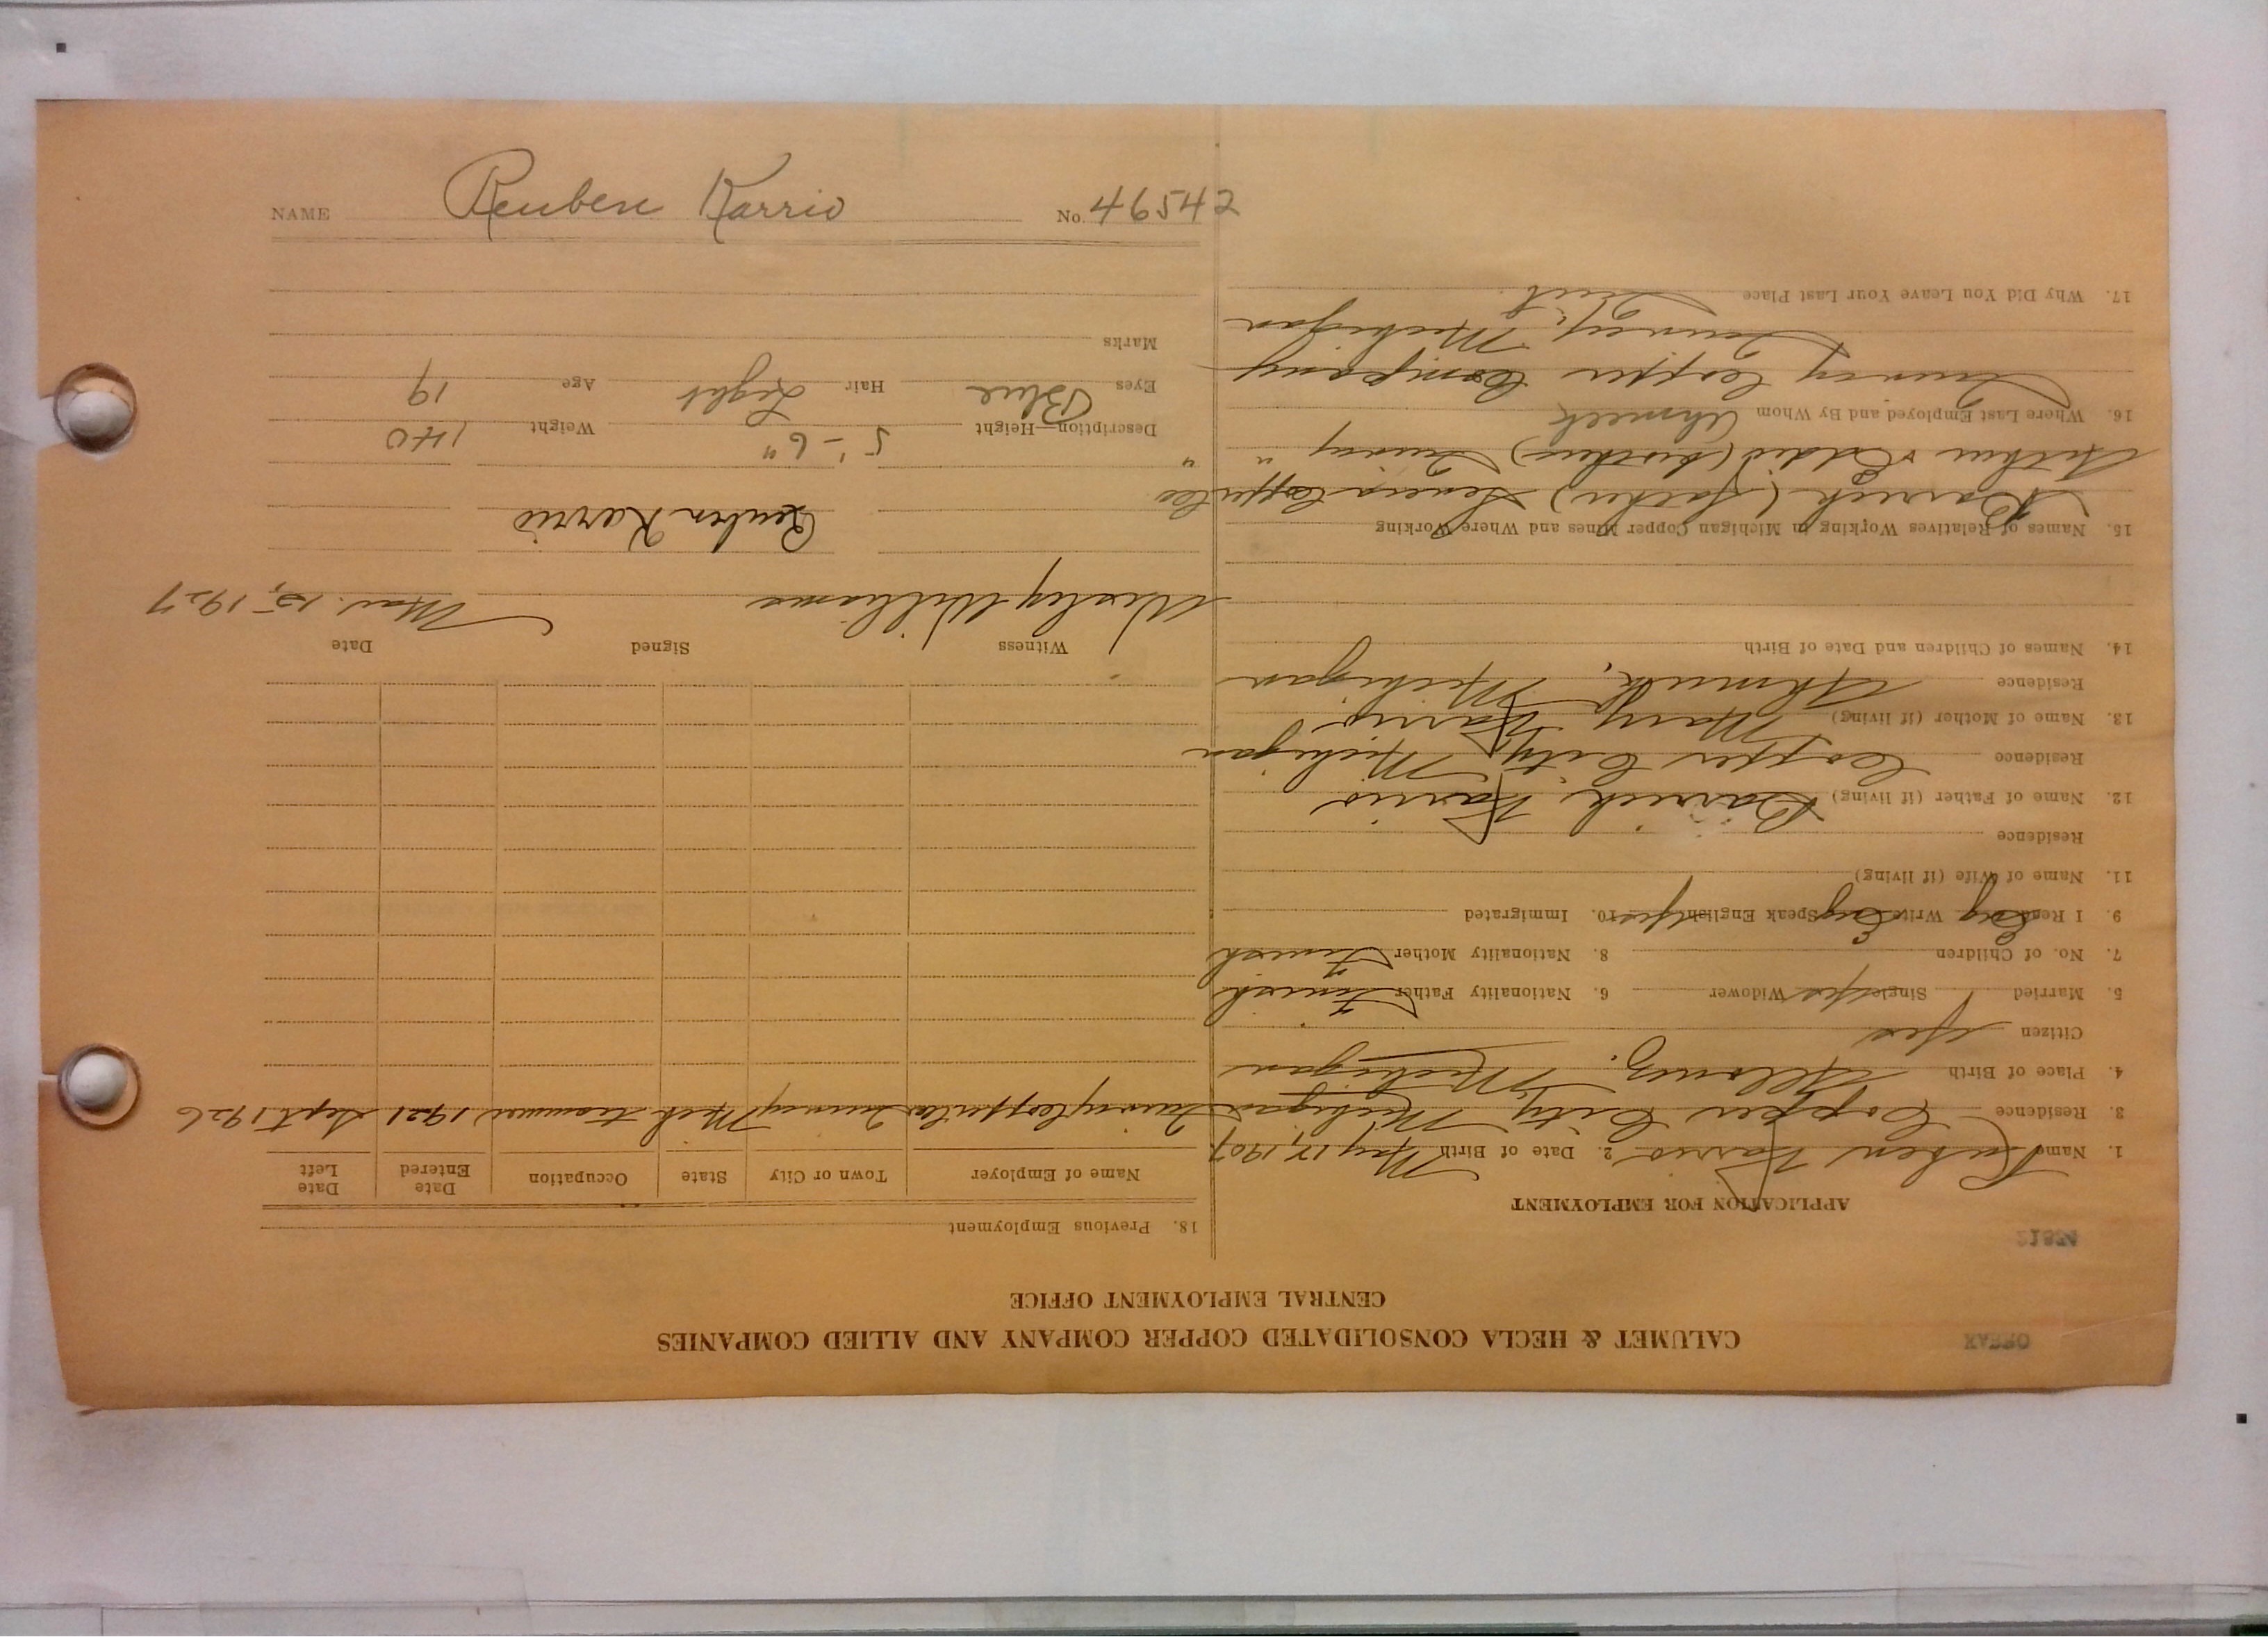 NAME Reuben Karrio No. 46542
CALUMET & HECLA CONSOLIDATED COPPER COMPANY AND ALLIED COMPANIES
CENTRAL EMPLOYMENT OFFICE
APPLICATION FOR EMPLOYMENT
1. Name Reuben Karrio 2. Date of Birth May 17, 1907
3. Residence Copper City, Michigan
4. Place of Birth Allouez, Michigan
Citizen Yes
5. Married Single yes Widower 6. Nationality Father Finnish
7. No. of Children 8. Nationality Mother Finnish
9. I Read Eng Write Eng Speak English yes 10. Immigrated
11. Name of Wife (if living)
Residence
12. Name of Father (if living) Karrio
Residence Copper City, Michigan
13. Name of Mother (if living) Mary Karrio
Residence Ahmeek, Michigan
14. Names of Children and Date of Birth
15. Names of Relatives Working in Michigan Copper Mines and Where Working
(father) Seneca Copper Co
Arthur & (brothers) Quincy " "
16. Where Last Employed and By Whom Ahmeek
Quincy Copper Company
Quincy, Michigan
17. Why Did You Leave Your Last Place Quit
18. Previous Employment
Name of Employer Town or City State Occupation Date Entered Date Left
Quincy Copper Co Quincy Mich trammer 1921 Sept 1926
Witness Signed Date
Wesley Williams Mar. 15, 1927
Reuben Karrio
Description—Height 5'-6" Weight 140
Eyes Blue Hair Light Age 19
Marks